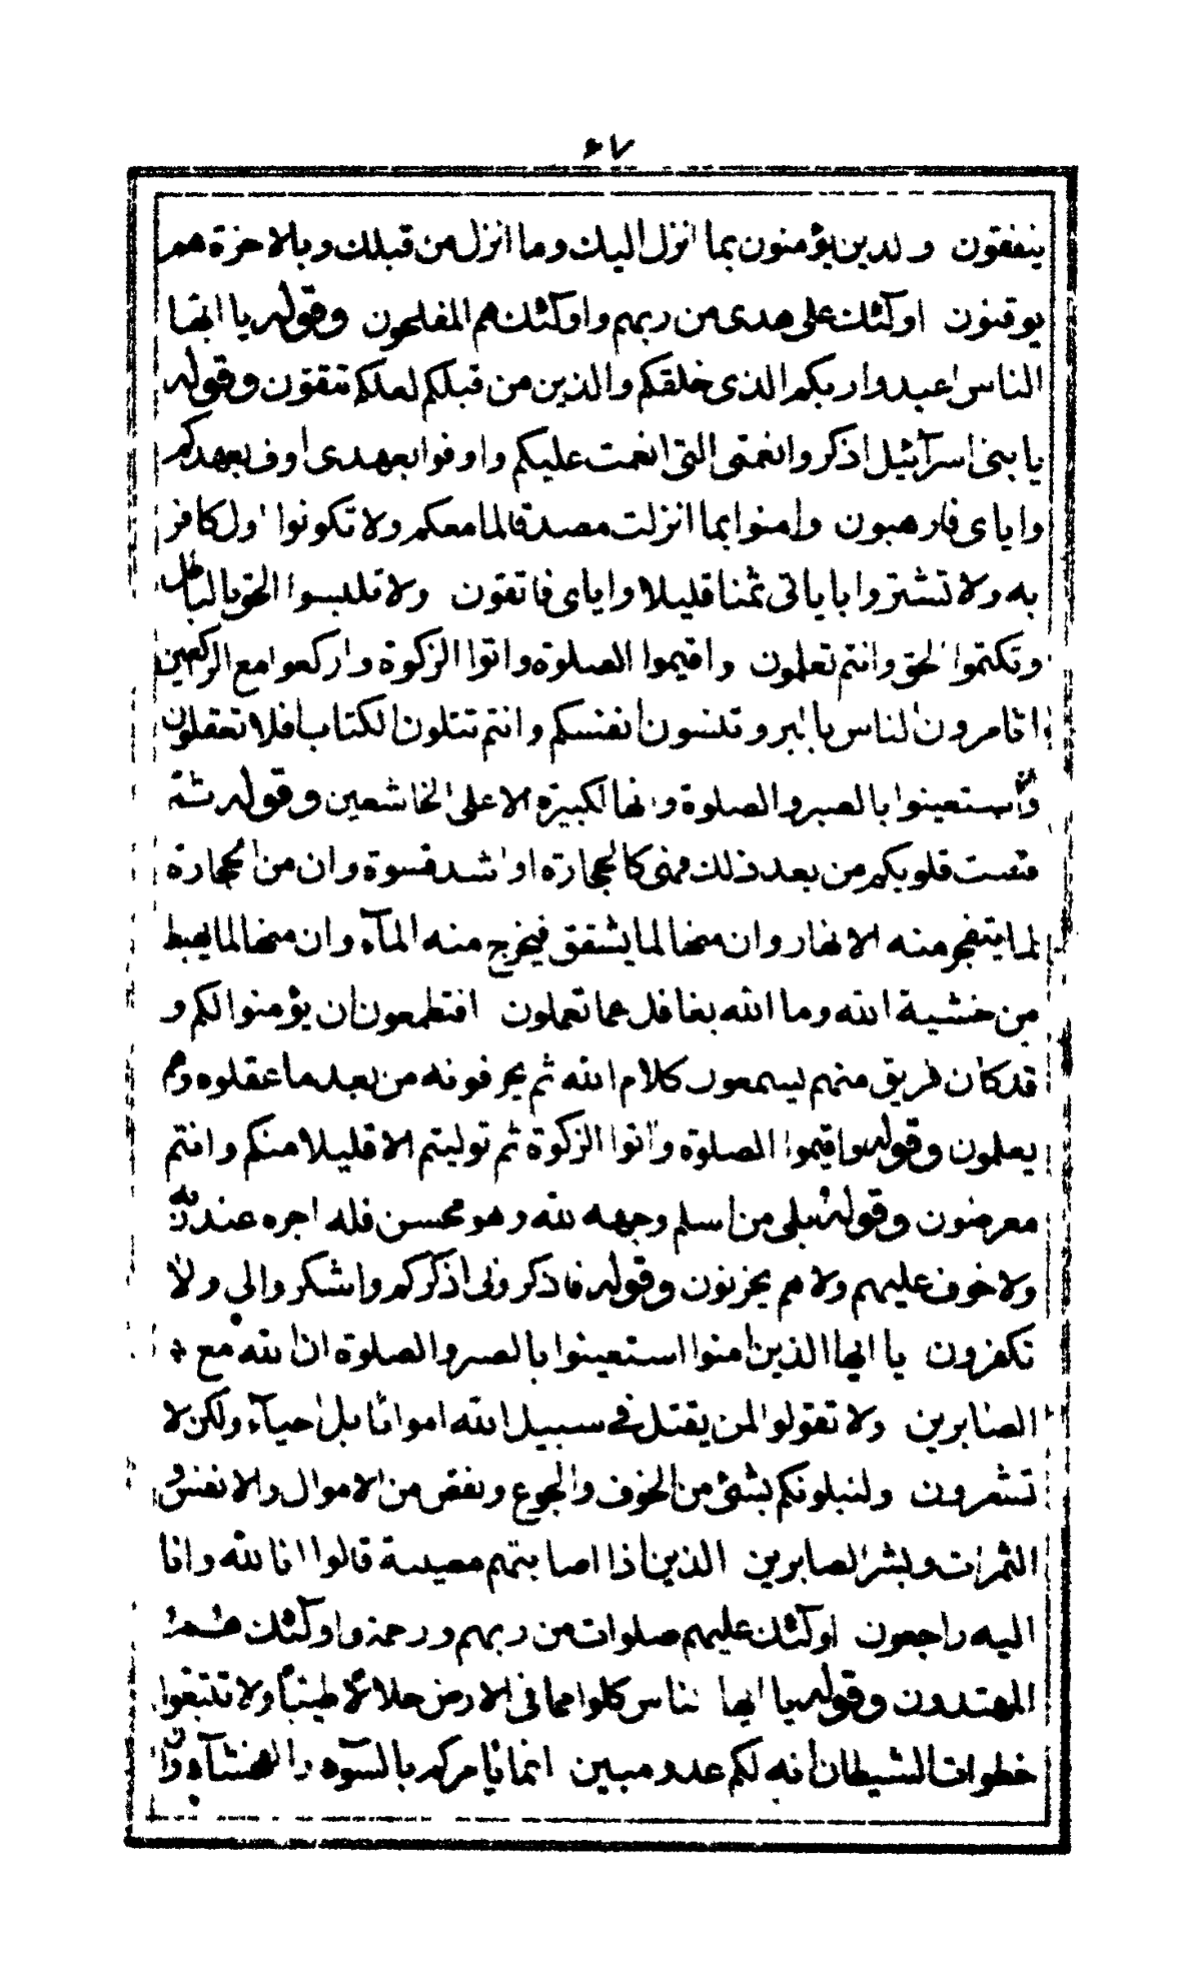 ٦٧
ينفقون والذين يؤمنون بما انزل اليك وما انزل من قبلك وبالاخرة هم
يوقنون اولئك على هدى من ربهم واولئك هم المفلحون وقوله يا ايها
الناس اعبدوا ربكم الذى خلقكم والذين من قبلكم لعلكم تتقون وقوله
يا بنى اسرآئيل اذكروا نعمتى التى انعمت عليكم واوفوا بعهدى اوف بعهدكم
واياى فارهبون وامنوا بما انزلت مصدقا لما معكم ولا تكونوا اول كافر
به ولا تشتروا باياتى ثمنا قليلا واياى فاتقون ولا تلبسوا الحق بالباطل
وتكتموا الحق وانتم تعلمون واقيموا الصلوة واتوا الزكوة واركعوا مع الراكعين
اتامرون الناس بالبر وتنسون انفسكم وانتم تتلون الكتاب افلا تعقلون
واستعينوا بالصبر والصلوة وانها لكبيرة الا على الخاشعين وقوله ثم
قست قلوبكم من بعد ذلك فهى كالحجارة او اشد قسوة وان من الحجارة
لما يتفجر منه الانهار وان منها لما يشقق فيخرج منه المآء وان منها لما يهبط
من خشية الله وما الله بغافل عما تعملون افتطمعون ان يؤمنوا لكم و
قد كان فريق منهم يسمعون كلام الله ثم يحرفونه من بعد ما عقلوه وهم
يعلمون وقوله واقيموا الصلوة واتوا الزكوة ثم توليتم الا قليلا منكم وانتم
معرضون وقوله بلى من اسلم وجهه لله وهو محسن فله اجره عند ربه
ولا خوف عليهم ولا هم يحزنون وقوله فاذكرونى اذكركم واشكروا لي ولا
تكفرون يا ايها الذين امنوا استعينوا بالصبر والصلوة ان الله مع
الصابرين ولا تقولوا لمن يقتل فى سبيل الله امواتا بل احيآء ولكن لا
تشعرون ولنبلونكم بشئ من الخوف والجوع ونقص من الاموال والانفس و
الثمرات وبشر الصابرين الذين اذا اصابتهم مصيبة قالوا انا لله وانا
اليه راجعون اولئك عليهم صلوات من ربهم ورحمة واولئك هم
المهتدون وقوله يا ايها الناس كلوا مما فى الارض حلالا طيبا ولا تتبعوا
خطوات الشيطان انه لكم عدو مبين انما يامركم بالسوء والفحشآء وان